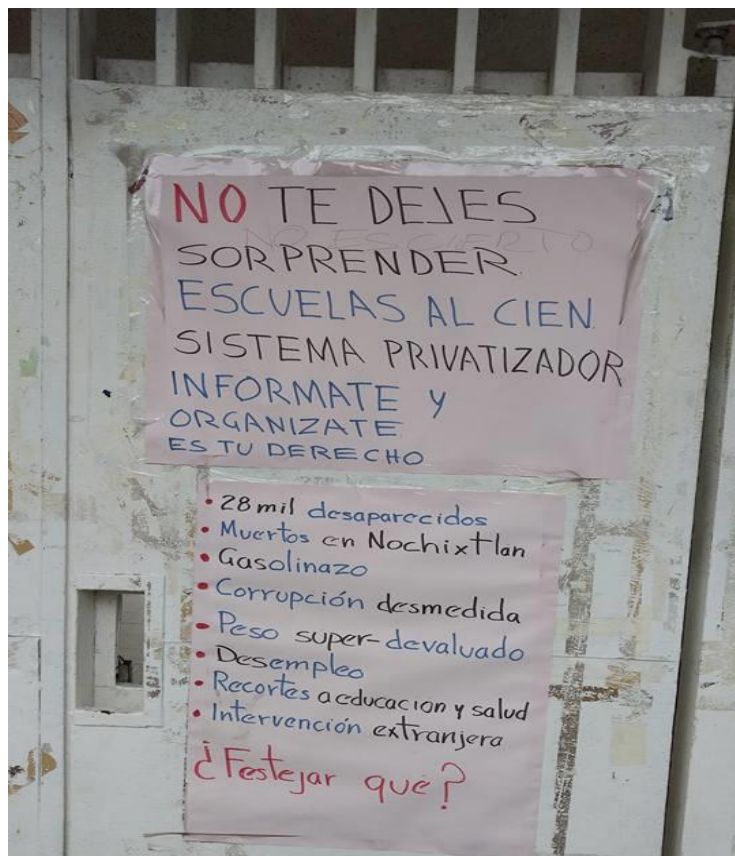 NO TE DEJES
NO ES CIERTO
SORPRENDER
ESCUELAS AL CIEN
SISTEMA PRIVATIZADOR
INFORMATE Y
ORGANIZATE
ES TU DERECHO
• 28 mil desaparecidos
• Muertos en Nochixtlan
• Gasolinazo
• Corrupción desmedida
• Peso super-devaluado
• Desempleo
• Recortes a educacion y salud
• Intervención extranjera
¿Festejar qué?